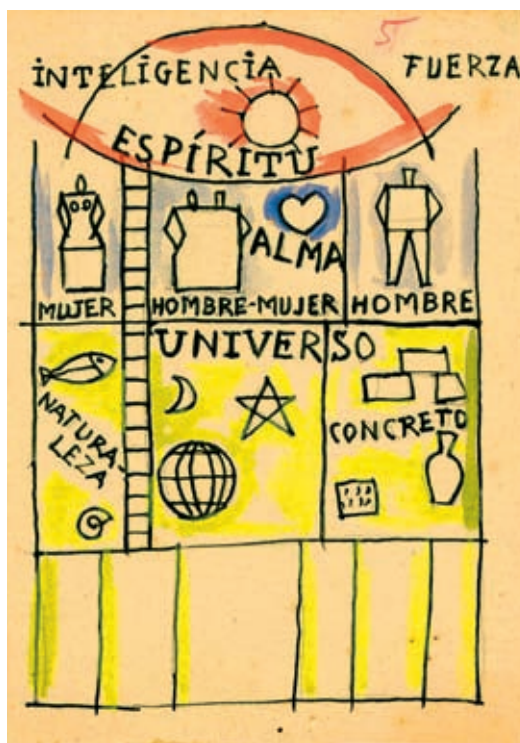 5
INTELIGENCIA FUERZA
ESPÍRITU
ALMA
MUJER HOMBRE-MUJER HOMBRE
UNIVERSO
NATURA-
LEZA
CONCRETO